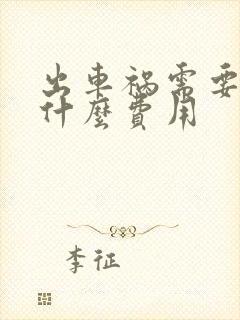 出車禍需要
什麼費用
李征